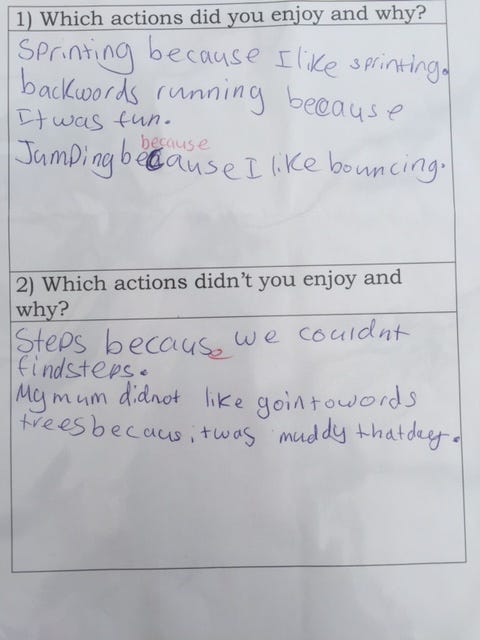 1) Which actions did you enjoy and why?
Sprinting because I like sprinting.
backwords running because
It was fun.
because
Jumping because I like bouncing.
2) Which actions didn't you enjoy and
why?
Steps because we couldnt
find steps.
My mum didnot like goin towords
trees becaus it was muddy that day.